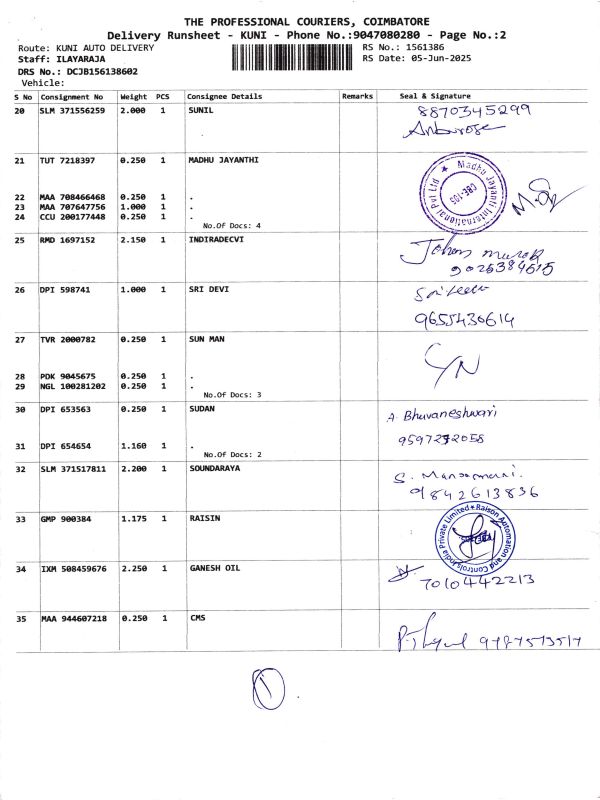 THE PROFESSIONAL COURIERS, COIMBATORE
Delivery Runsheet - KUNI - Phone No.:9047080280 - Page No.:2
Route: KUNI AUTO DELIVERY RS No.: 1561386
Staff: ILAYARAJA RS Date: 05-Jun-2025
DRS No.: DCJB156138602
Vehicle:
S No Consignment No Weight PCS Consignee Details Remarks Seal & Signature
20 SLM 371556259 2.000 1 SUNIL 8870345299
Anburose
21 TUT 7218397 0.250 1 MADHU JAYANTHI
Madhu Jayanti International Pvt Ltd ★
CBE-103
22 MAA 708466468 0.250 1 .
23 MAA 707647756 1.000 1 .
24 CCU 200177448 0.250 1 .
No.Of Docs: 4
25 RMD 1697152 2.150 1 INDIRADECVI
9025384615
26 DPI 598741 1.000 1 SRI DEVI
9655430614
27 TVR 2000782 0.250 1 SUN MAN
28 PDK 9045675 0.250 1 .
29 NGL 100281202 0.250 1 .
No.Of Docs: 3
30 DPI 653563 0.250 1 SUDAN A. Bhuvaneshwari
31 DPI 654654 1.160 1 . 9597272058
No.Of Docs: 2
32 SLM 371517811 2.200 1 SOUNDARAYA
9842613836
33 GMP 900384 1.175 1 RAISIN
Raison Automation and Controls India Private Limited ★
34 IXM 508459676 2.250 1 GANESH OIL
7010442213
35 MAA 944607218 0.250 1 CMS
9787573517
1